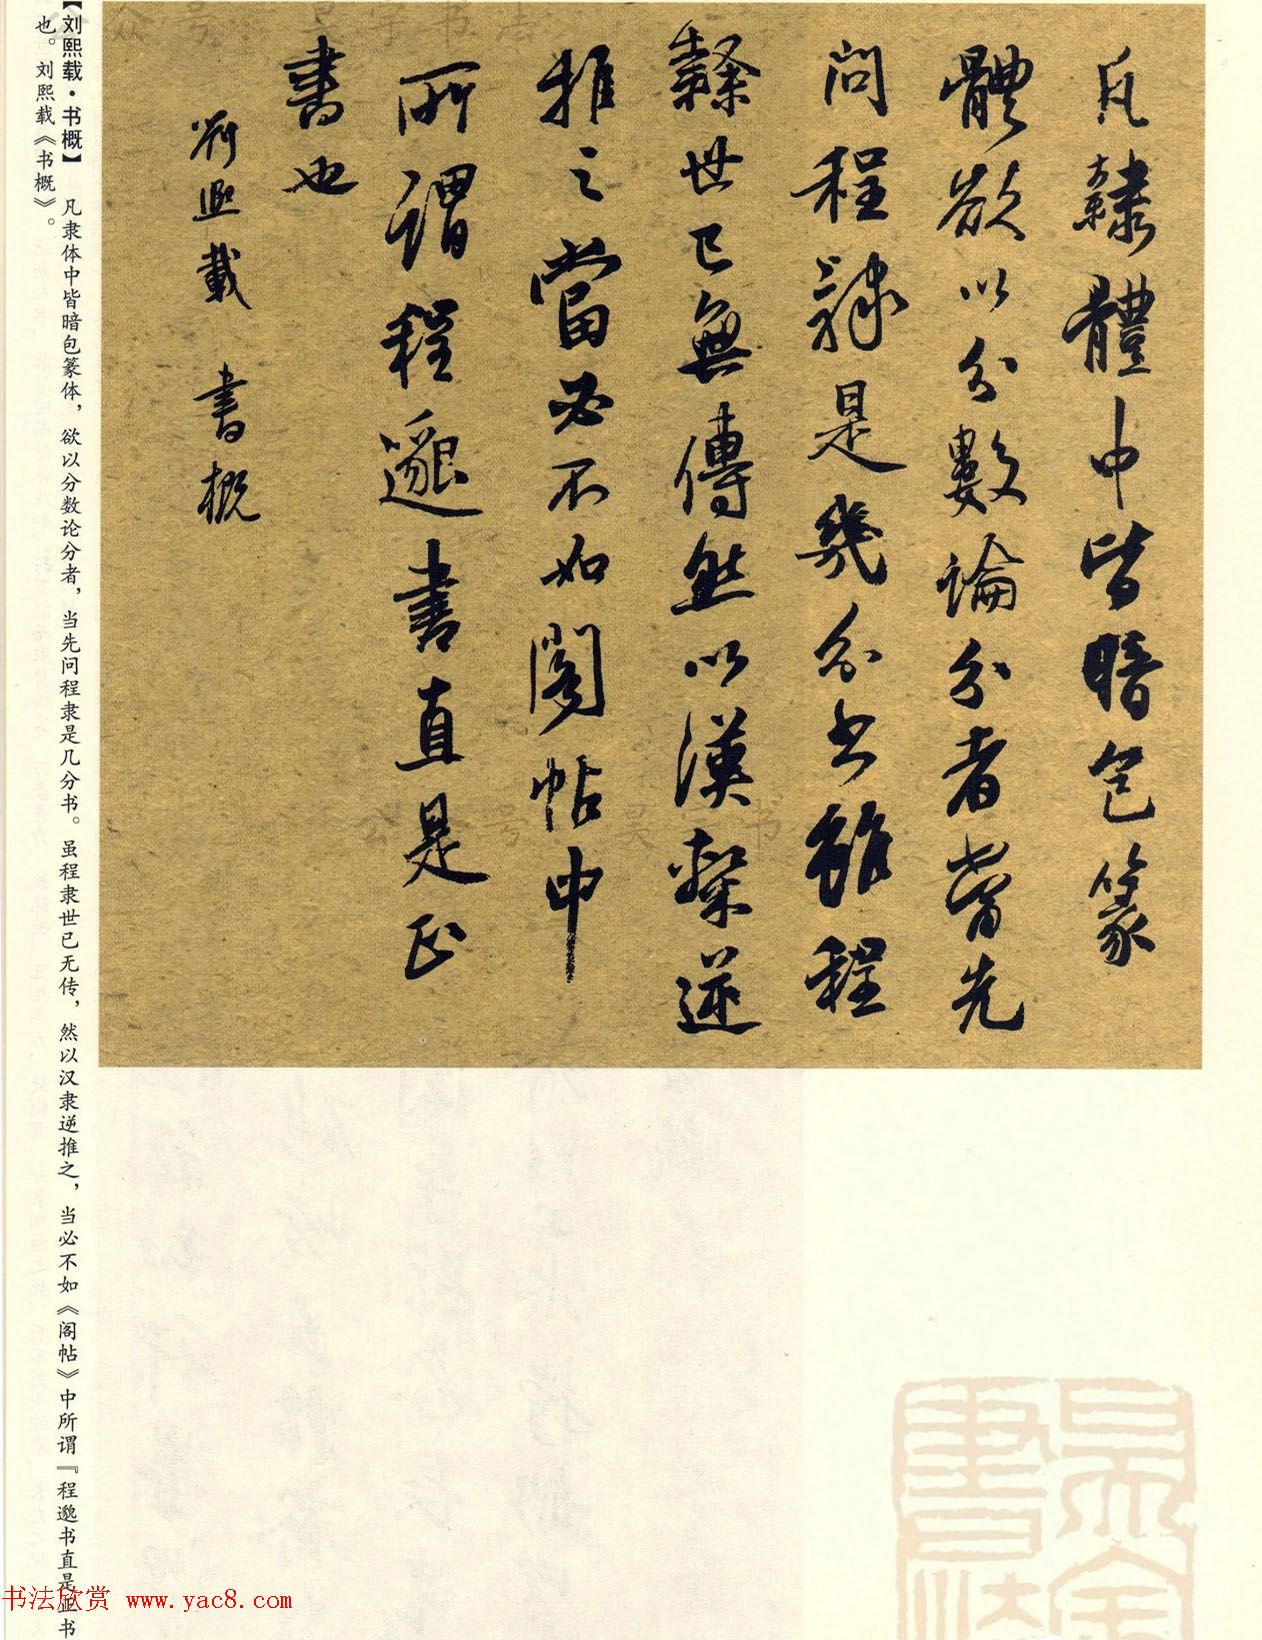 凡隸體中皆暗包篆
體欲以分數論分者當先
問程隸是幾分書雖程
隸世已無傳然以漢隸逆
推之當必不如閣帖中
所謂程邈書直是正
書也
劉熙載 書概
【刘熙载·书概】 凡隶体中皆暗包篆体，欲以分数论分者，当先问程隶是几分书。虽程隶世已无传，然以汉隶逆推之，当必不如《阁帖》中所谓『程邈书直是正书
也。刘熙载《书概》。
书法欣赏 www.yac8.com